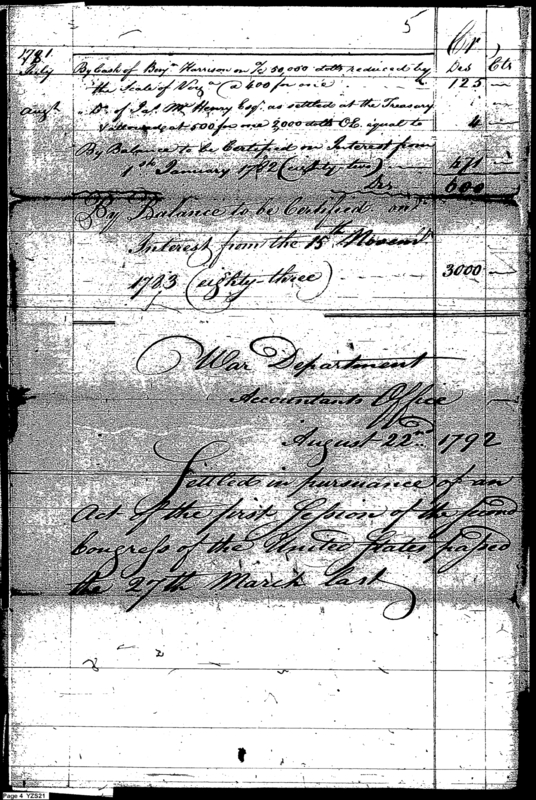 5
Cr
1781
Drs Cts
July By Cash of Benj.n Harrison on % 50,000 dolls reduced by
the Scale of Virg.a @ 400 for one 125 —
Augt " Do of Jas McHenry Esqr as settled at the Treasury
500 for one 2,000 dolls O.E. equal to 4 —
By Balance to be Certified on Interest from
1st January 1782 (eighty-two) 471 —
Drs 600 —
By Balance to be Certified on
Interest from the 15th Novem.r
1783 (eighty-three) 3000 —
War Department
Accountants Office
August 22nd 1792
Settled in pursuance of an
Act of the first Session of the second
Congress of the United States passed
the 27th March last
Page 4 YZS21